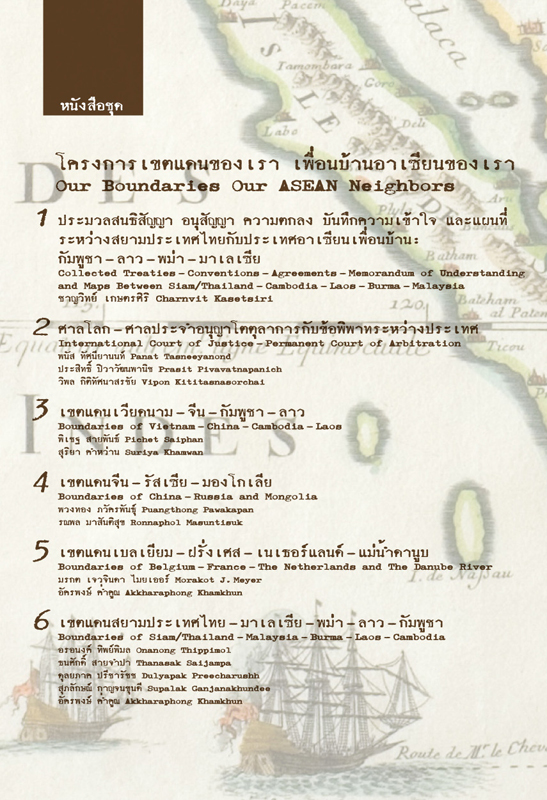 หนังสือชุด
โครงการเขตแดนของเรา เพื่อนบ้านอาเซียนของเรา
Our Boundaries Our ASEAN Neighbors
1 ประมวลสนธิสัญญา อนุสัญญา ความตกลง บันทึกความเข้าใจ และแผนที่
ระหว่างสยามประเทศไทยกับประเทศอาเซียนเพื่อนบ้าน:
กัมพูชา-ลาว-พม่า-มาเลเซีย
Collected Treaties-Conventions-Agreements-Memorandum of Understanding
and Maps Between Siam/Thailand-Cambodia-Laos-Burma-Malaysia
ชาญวิทย์ เกษตรศิริ Charnvit Kasetsiri
2 ศาลโลก-ศาลประจำอนุญาโตตุลาการกับข้อพิพาทระหว่างประเทศ
International Court of Justice-Permanent Court of Arbitration
พนัส ทัศนียานนท์ Panat Tasneeyanond
ประสิทธิ์ ปิวาวัฒนพานิช Prasit Pivavatnapanich
วิพล กิติทัศนาสรชัย Vipon Kititasnasorchai
3 เขตแดนเวียดนาม-จีน-กัมพูชา-ลาว
Boundaries of Vietnam-China-Cambodia-Laos
พิเชฐ สายพันธ์ Pichet Saiphan
สุริยา คำหว่าน Suriya Khamwan
4 เขตแดนจีน-รัสเซีย-มองโกเลีย
Boundaries of China-Russia and Mongolia
พวงทอง ภวัครพันธุ์ Puangthong Pawakapan
รณพล มาสันติสุข Ronnaphol Masuntisuk
5 เขตแดนเบลเยียม-ฝรั่งเศส-เนเธอร์แลนด์-แม่น้ำดานูบ
Boundaries of Belgium-France-The Netherlands and The Danube River
มรกต เจวจินดา ไมยเออร์ Morakot J. Meyer
อัครพงษ์ ค่ำคูณ Akkharaphong Khamkhun
6 เขตแดนสยามประเทศไทย-มาเลเซีย-พม่า-ลาว-กัมพูชา
Boundaries of Siam/Thailand-Malaysia-Burma-Laos-Cambodia
อรอนงค์ ทิพย์พิมล Onanong Thippimol
ธนศักดิ์ สายจำปา Thanasak Saijampa
ดุลยภาค ปรีชารัชช Dulyapak Preecharushh
สุภลักษณ์ กาญจนขุนดี Supalak Ganjanakhundee
อัครพงษ์ ค่ำคูณ Akkharaphong Khamkhun
DES
INDES
alaca
Daya
Pacem
Jamombara
Goro
Labo
Deli
120.
Batcham
al Paten
Ticou
I. de Nassau
Route de Mr. le Cheva